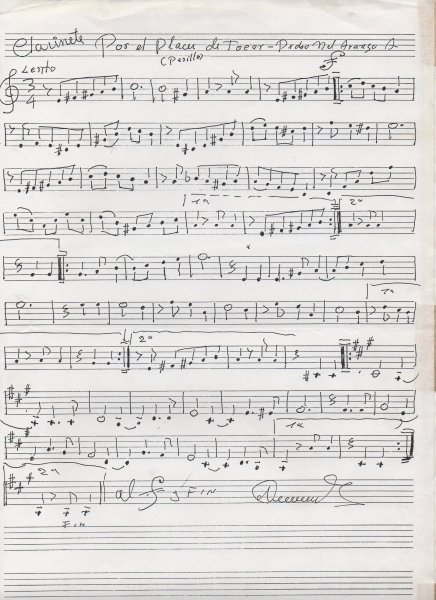 Clarinete Por el Placer de Tocar - Pedro Nel Arango A
(Pasillo)
Lento
3
4
1a
2a
1a
2a
1a
2a
al y FIN
FIN